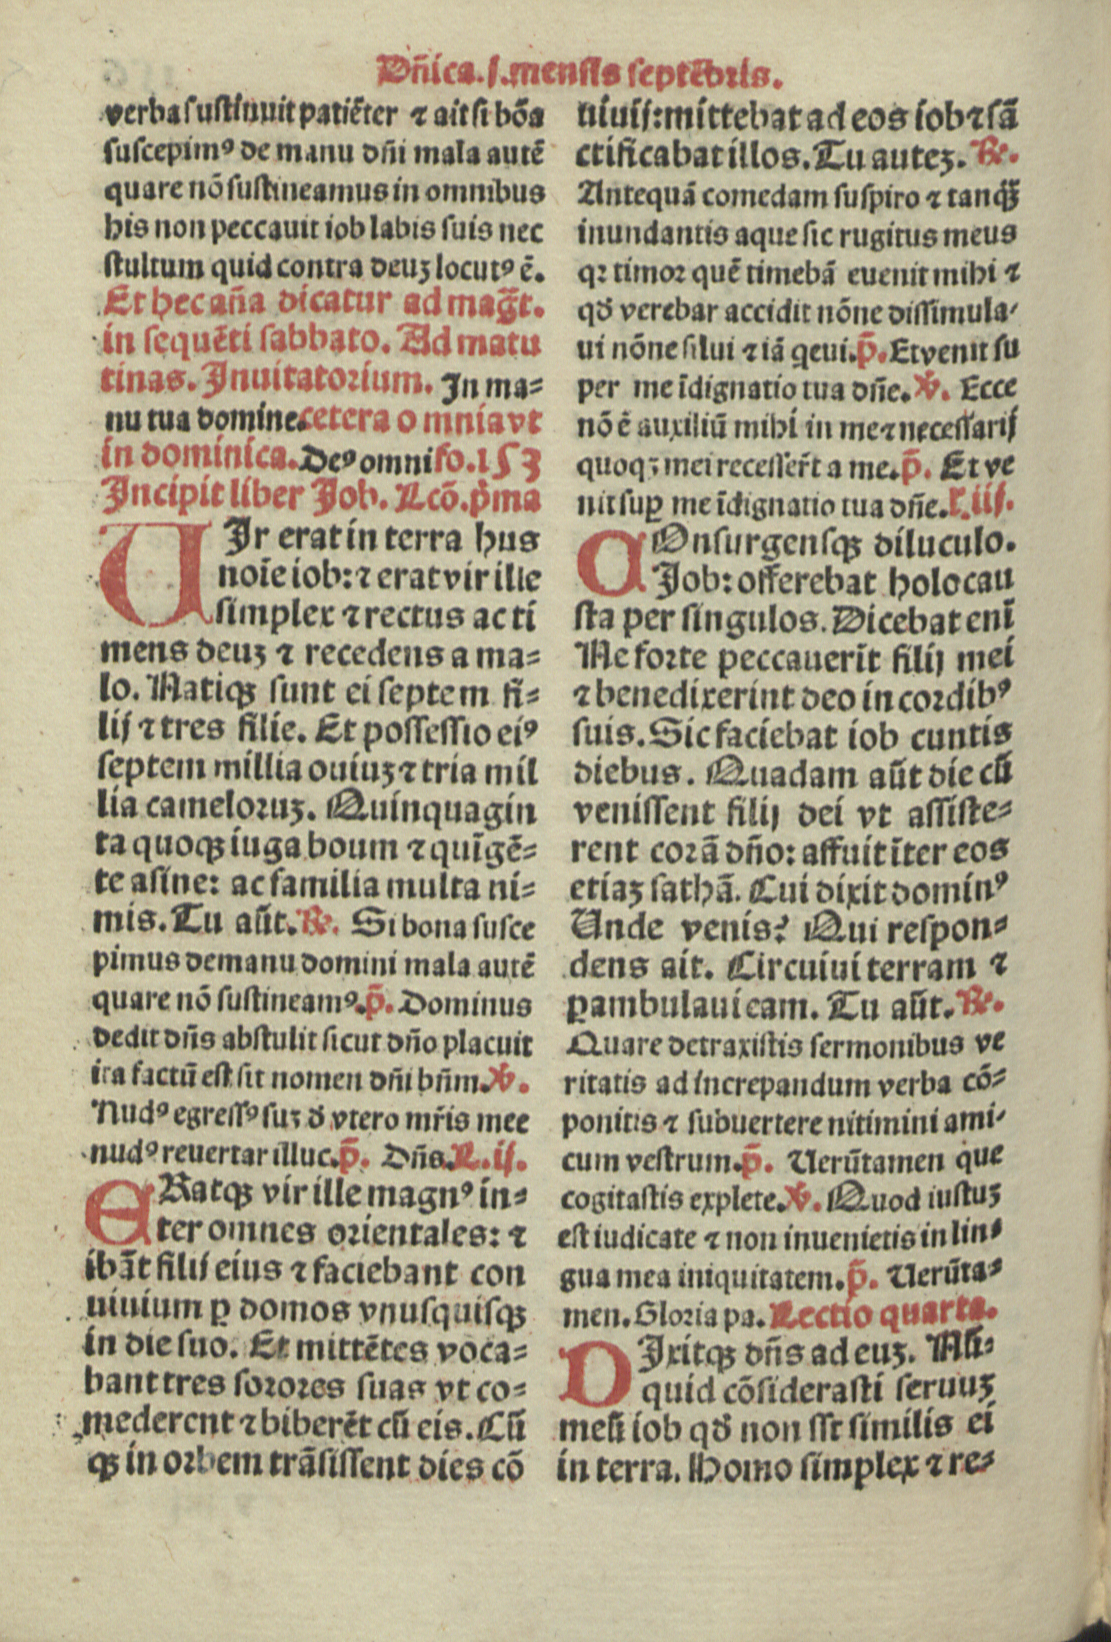 Dn̄ica .j. mensis septēbris.
verba sustinuit patiēter ⁊ ait si bōa
suscepimꝰ de manu dn̄i mala autē
quare nō sustineamus in omnibus
his non peccauit iob labis suis nec
stultum quid contra deuʒ locutꝰ ē.
Et hec an̄a dicatur ad mag̅t.
in sequēti sabbato. Ad matu
tinas. Inuitatorium. In ma-
nu tua domine. cetera omnia vt
in dominica. Deꝰ omni fo. 153
Incipit liber Job. Lcō. p̄ma
UIr erat in terra hus
noīe iob: ⁊ erat vir ille
simplex ⁊ rectus ac ti
mens deuʒ ⁊ recedens a ma-
lo. Natiqʒ sunt ei septem fi-
lij ⁊ tres filie. Et possessio eiꝰ
septem millia ouiuʒ ⁊ tria mil
lia cameloruʒ. Quinquagin
ta quoqʒ iuga boum ⁊ quīgē-
te asine: ac familia multa ni-
mis. Tu aūt. ℟. Si bona susce
pimus de manu domini mala autē
quare nō sustineamꝰ. p̄. Dominus
dedit dn̄s abstulit sicut dn̄o placuit
ita factū est sit nomen dn̄i bn̄m. ℣.
Nudꝰ egressꝰ suʒ đ vtero mr̄is mee
nudꝰ reuertar illuc. p̄. Dn̄s. L. ij.
ERatqʒ vir ille magnꝰ in-
ter omnes orientales: ⁊
ibāt filij eius ⁊ faciebant con
uiuium ꝑ domos vnusquisqʒ
in die suo. Et mittētes voca-
bant tres sorores suas vt co-
mederent ⁊ biberēt cū eis. Cū
qʒ in orbem trāsissent dies cō
uiuij: mittebat ad eos iob ⁊ sā
ctificabat illos. Tu auteʒ. ℟.
Antequā comedam suspiro ⁊ tanqʒ̄
inundantis aque sic rugitus meus
qꝛ timor quē timebā euenit mihi ⁊
qđ verebar accidit nōne dissimula-
ui nōne silui ⁊ iā q̇eui. p̄. Et venit su
per me īdignatio tua dn̄e. ℣. Ecce
nō ē auxiliū mihi in me ⁊ necessarij
quoqʒ mei recesser̄t a me. p̄. Et ve
nit suꝑ me īdignatio tua dn̄e. l. iij.
COnsurgensqʒ diluculo.
Job: offerebat holocau
sta per singulos. Dicebat enī
Ne forte peccauerīt filij mei
⁊ benedixerint deo in cordibꝰ
suis. Sic faciebat iob cuntis
diebus. Quadam aūt die cū
venissent filij dei vt assiste-
rent corā dn̄o: affuit īter eos
etiaʒ sathā. Cui dixit dominꝰ
Unde venis? Qui respon-
dens ait. Circuiui terram ⁊
ꝑambulaui eam. Tu aūt. ℟.
Quare detraxistis sermonibus ve
ritatis ad increpandum verba cō-
ponitis ⁊ subuertere nitimini ami-
cum vestrum. p̄. Uerūtamen que
cogitastis explete. ℣. Quod iustuʒ
est iudicate ⁊ non inuenietis in lin-
gua mea iniquitatem. p̄. Uerūta-
men. Gloria pa. Lectio quarta.
DIxitqʒ dn̄s ad euʒ. Nū-
quid cōsiderasti seruuʒ
meū iob qđ non sit similis ei
in terra. Homo simplex ⁊ re-